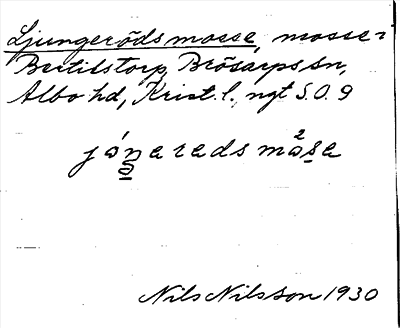 Ljungerödsmosse, mosse i
Bertilstorp, Brösarps sn,
Albo hd, Krist. l., ngt S.O. 9
Nils Nilsson 1930